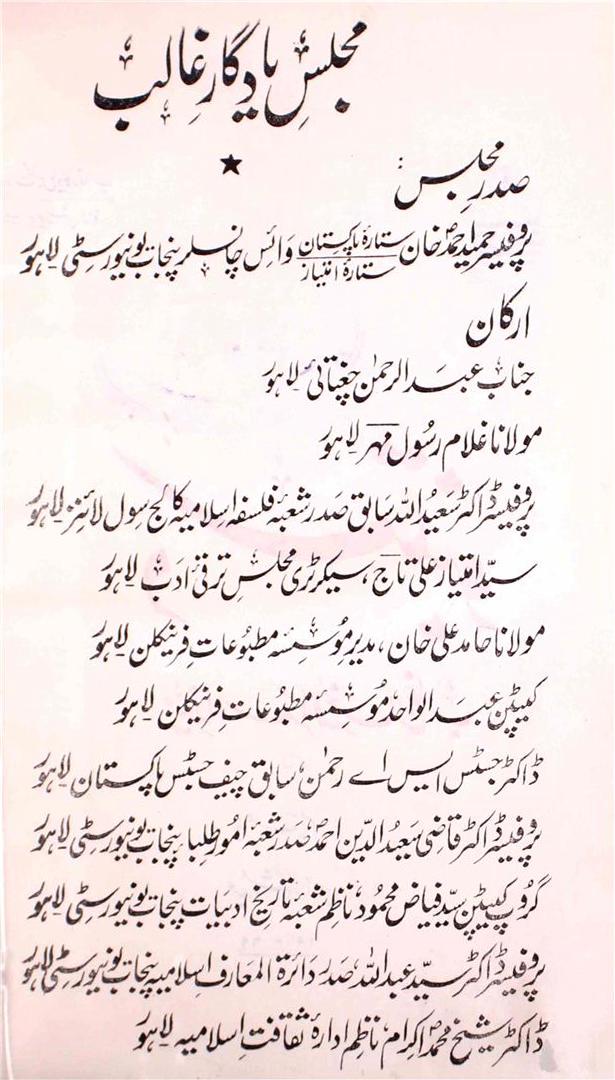 مجلسِ یادگارِ غالب
★
صدر مجلس :
پروفیسر حمید احمد خان ستارۂ پاکستان ستارۂ امتیاز وائس چانسلر پنجاب یونیورسٹی لاہور
ارکان
جناب عبدالرحمٰن چغتائی لاہور
مولانا غلام رسُول مہر لاہور
پروفیسر ڈاکٹر سعیدُ اللہ سابق صدر شعبۂ فلسفہ اسلامیہ کالج سِول لائنز لاہور
سیّد امتیاز علی تاج، سیکرٹری مجلسِ ترقیٔ ادب لاہور
مولانا حامد علی خان، مدیر مؤسسۂ مطبُوعاتِ فرینکلن لاہور
کیپٹن عبدالواحد، مؤسسۂ مطبُوعاتِ فرینکلن لاہور
ڈاکٹر جسٹس ایس اے رحمٰن، سابق چیف جسٹس پاکستان لاہور
پروفیسر ڈاکٹر قاضی سعیدُ الدّین احمد، صدر شعبۂ امُورِ طلبا، پنجاب یونیورسٹی لاہور
گروپ کیپٹن سیّد فیاض محمُود، ناظم شعبۂ تاریخِ ادبیات پنجاب یونیورسٹی لاہور
پروفیسر ڈاکٹر سیّد عبداللہ، صدر دائرۃ المعارف اِسلامیہ، پنجاب یونیورسٹی لاہور
ڈاکٹر شیخ محمد اکرام، ناظم ادارۂ ثقافت اِسلامیہ لاہور